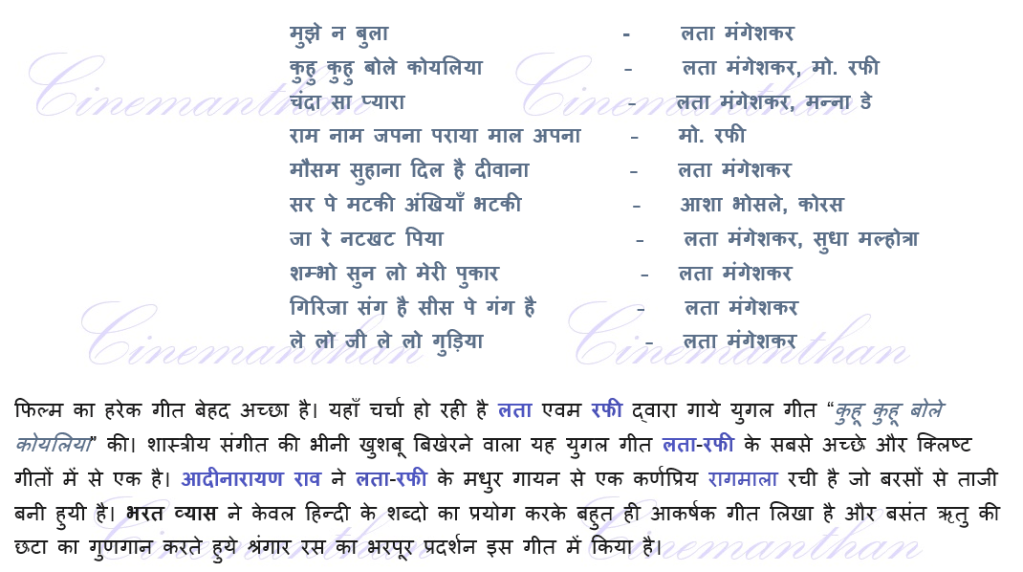 मुझे न बुला - लता मंगेशकर
कुहु कुहु बोले कोयलिया – लता मंगेशकर, मो. रफी
चंदा सा प्यारा – लता मंगेशकर, मन्ना डे
राम नाम जपना पराया माल अपना – मो. रफी
मौसम सुहाना दिल है दीवाना – लता मंगेशकर
सर पे मटकी अंखियाँ भटकी – आशा भोसले, कोरस
जा रे नटखट पिया – लता मंगेशकर, सुधा मल्होत्रा
शम्भो सुन लो मेरी पुकार – लता मंगेशकर
गिरिजा संग है सीस पे गंग है – लता मंगेशकर
ले लो जी ले लो गुड़िया – लता मंगेशकर
फिल्म का हरेक गीत बेहद अच्छा है। यहाँ चर्चा हो रही है लता एवम रफी द्वारा गाये युगल गीत “कुहू कुहू बोले
कोयलिया” की। शास्त्रीय संगीत की भीनी खुशबू बिखेरने वाला यह युगल गीत लता-रफी के सबसे अच्छे और क्लिष्ट
गीतों में से एक है। आदीनारायण राव ने लता-रफी के मधुर गायन से एक कर्णप्रिय रागमाला रची है जो बरसों से ताजी
बनी हुयी है। भरत व्यास ने केवल हिन्दी के शब्दो का प्रयोग करके बहुत ही आकर्षक गीत लिखा है और बसंत ऋतु की
छटा का गुणगान करते हुये श्रंगार रस का भरपूर प्रदर्शन इस गीत में किया है।
Cinemanthan Cinemanthan
Cinemanthan Cinemanthan
Cinemanthan Cinemanthan